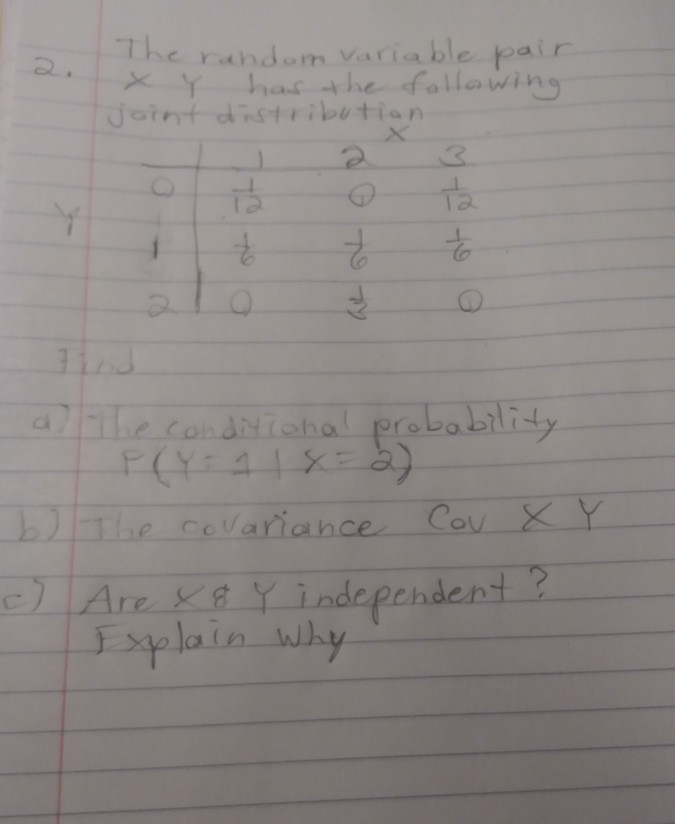 2. The random variable pair
X Y has the following
joint distribution
X
1 2 3
0 1/12 0 1/12
Y
1 1/6 1/6 1/6
2 0 1/3 0
Find
a) The conditional probability
P(Y=1 | X=2)
b) The covariance Cov X Y
c) Are X & Y independent?
Explain why